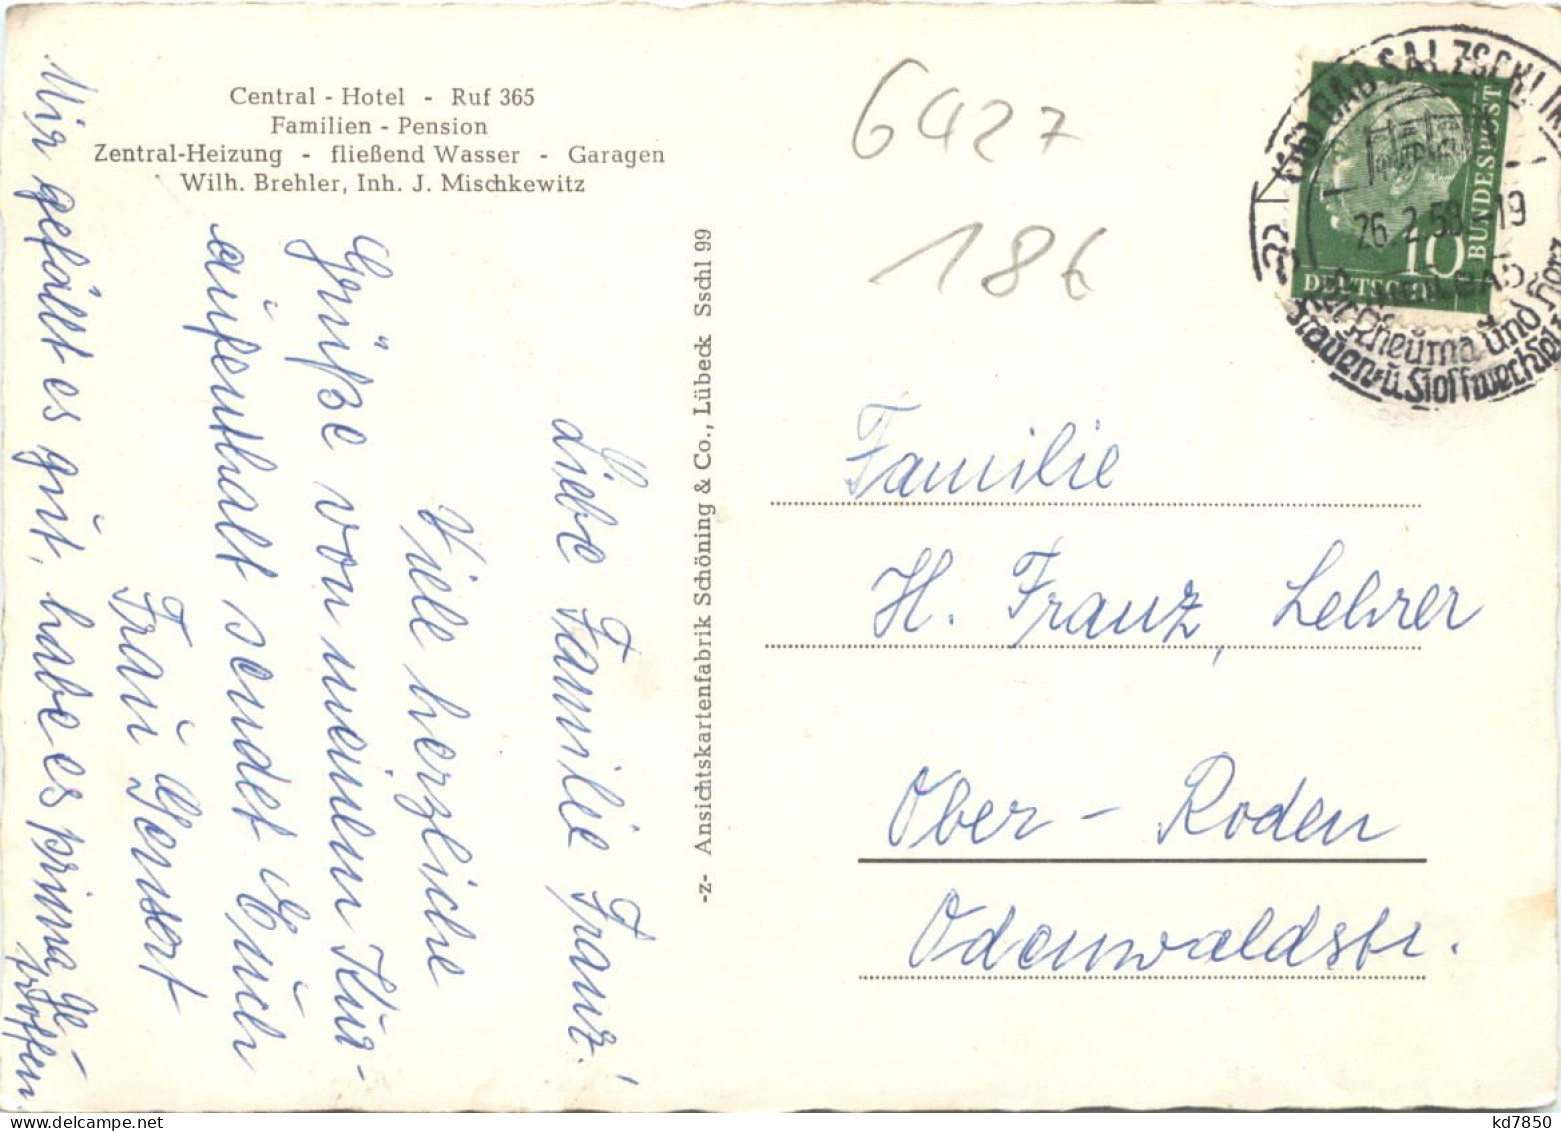 Central - Hotel - Ruf 365
Familien - Pension
Zentral-Heizung - fließend Wasser - Garagen
Wilh. Brehler, Inh. J. Mischkewitz
Liebe Familie Franz!
Viele herzliche
Grüße von meinem Kur-
aufenthalt sendet Euch
Frau Gensert
Mir gefällt es gut, habe es prima ge-
troffen.
-z- Ansichtskartenfabrik Schöning & Co., Lübeck Sschl 99
6427
18€
BAD SALZSCHLIRF
26.2.59.-19
Rheuma und Herz
Frauen- u. Stoffwechsel
10
DEUTSCHE
BUNDESPOST
Familie
H. Franz, Lehrer
Ober - Roden
Odenwaldstr.
kd7850